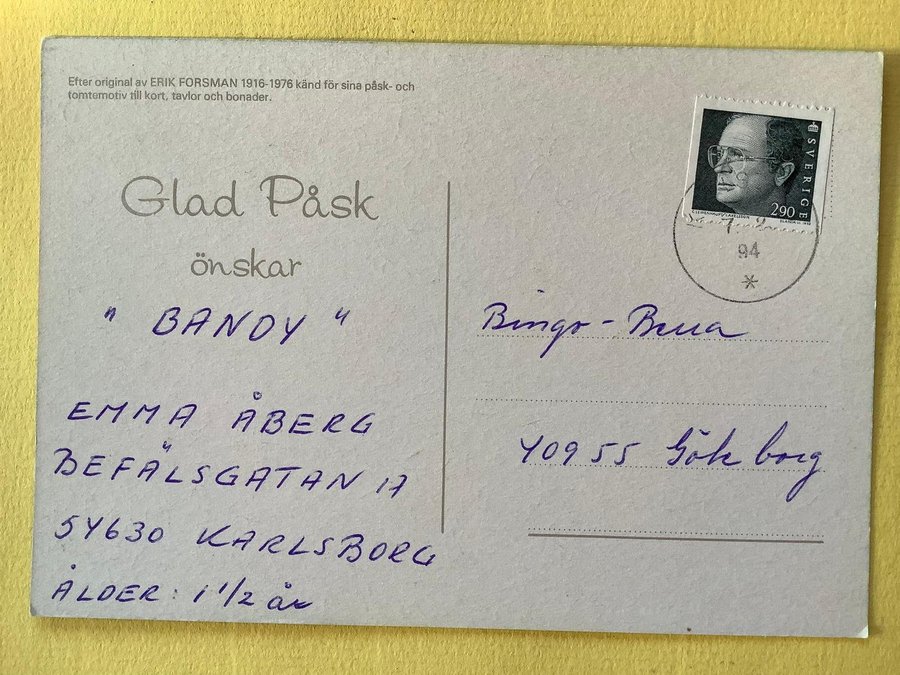 Efter original av ERIK FORSMAN 1916-1976 känd för sina påsk- och
tomtemotiv till kort, tavlor och bonader.
Glad Påsk
önskar
" BANDY "
EMMA ÅBERG
BEFÄLSGATAN 17
54630 KARLSBORG
ÅLDER: 1 1/2 år
SVERIGE
290
94
*
Bingo-Berra
409 55 Göteborg